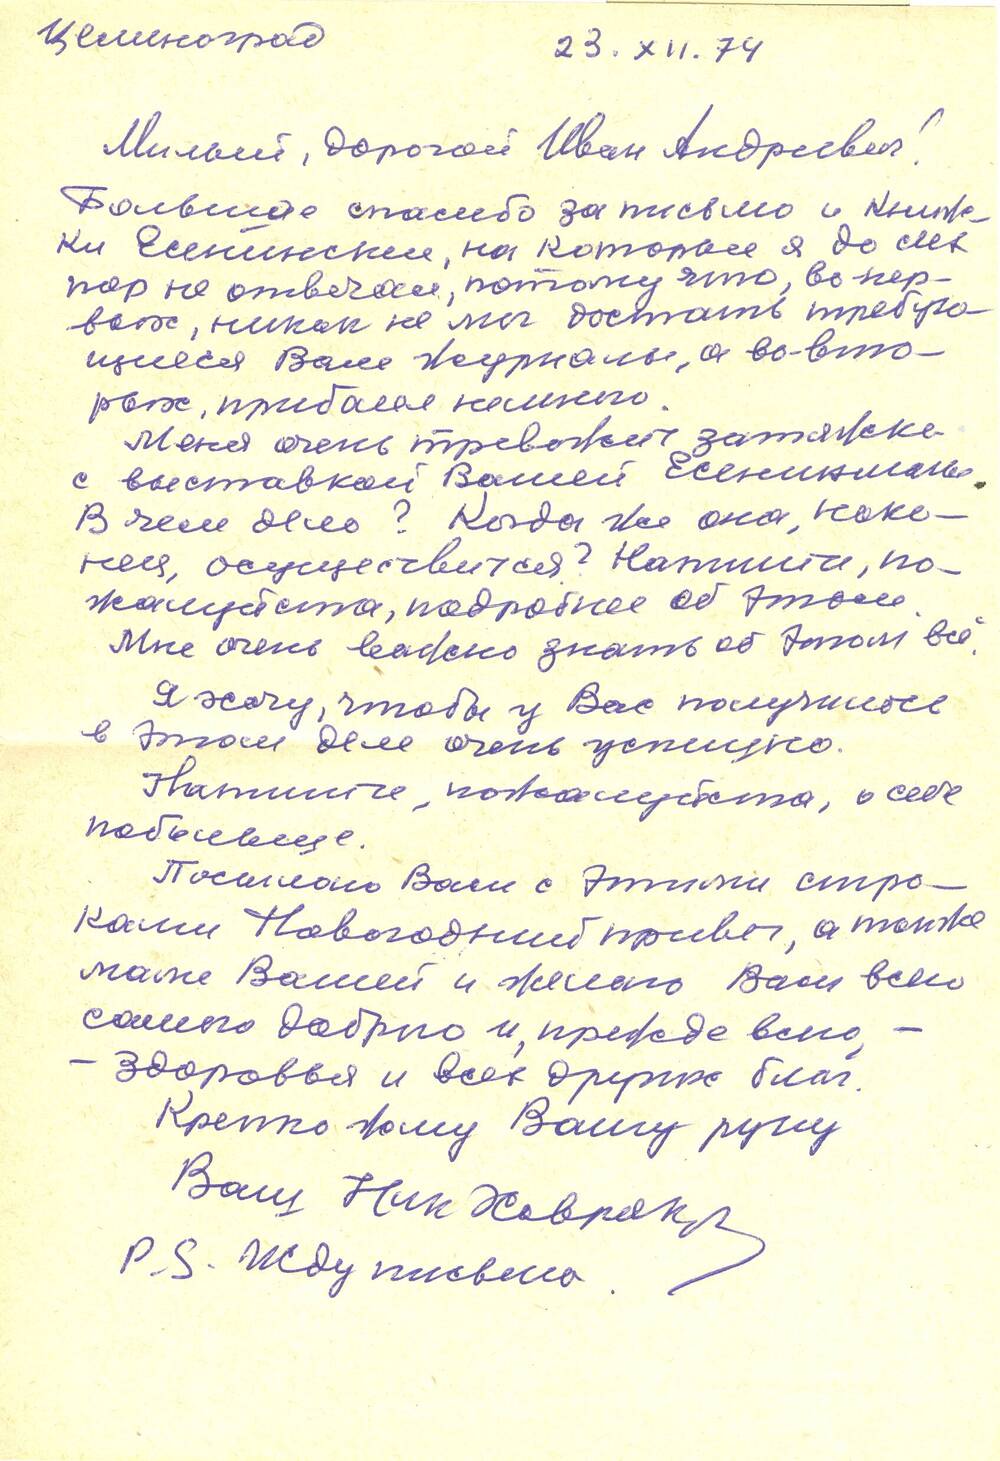 Целиноград
23. XII. 74
Милый, дорогой Иван Андреевич!
Большое спасибо за письмо и книж-
ки Есенинские, на которые я до сих
пор не отвечал, потому что, во-пер-
вых, никак не мог достать требую-
щиеся Вам журналы, а во-вто-
рых, прибалел немного.
Меня очень тревожит затяжка
с выставкой Вашей Есенинианы.
В чем дело? Когда же она, нако-
нец, осуществится? Напишите, по-
жалуйста, подробнее об этом.
Мне очень важно знать об этом всё.
Я хочу, чтобы у Вас получилось
в этом деле очень успешно.
Напишите, пожалуйста, о себе
побольше.
Посылаю Вам с этими стро-
ками Новогодний привет, а также
маме Вашей и желаю Вам всего
самого доброго и, прежде всего, -
- здоровья и всех других благ.
Крепко жму Вашу руку
Ваш Ник Ховряков
P.S. Жду письма.